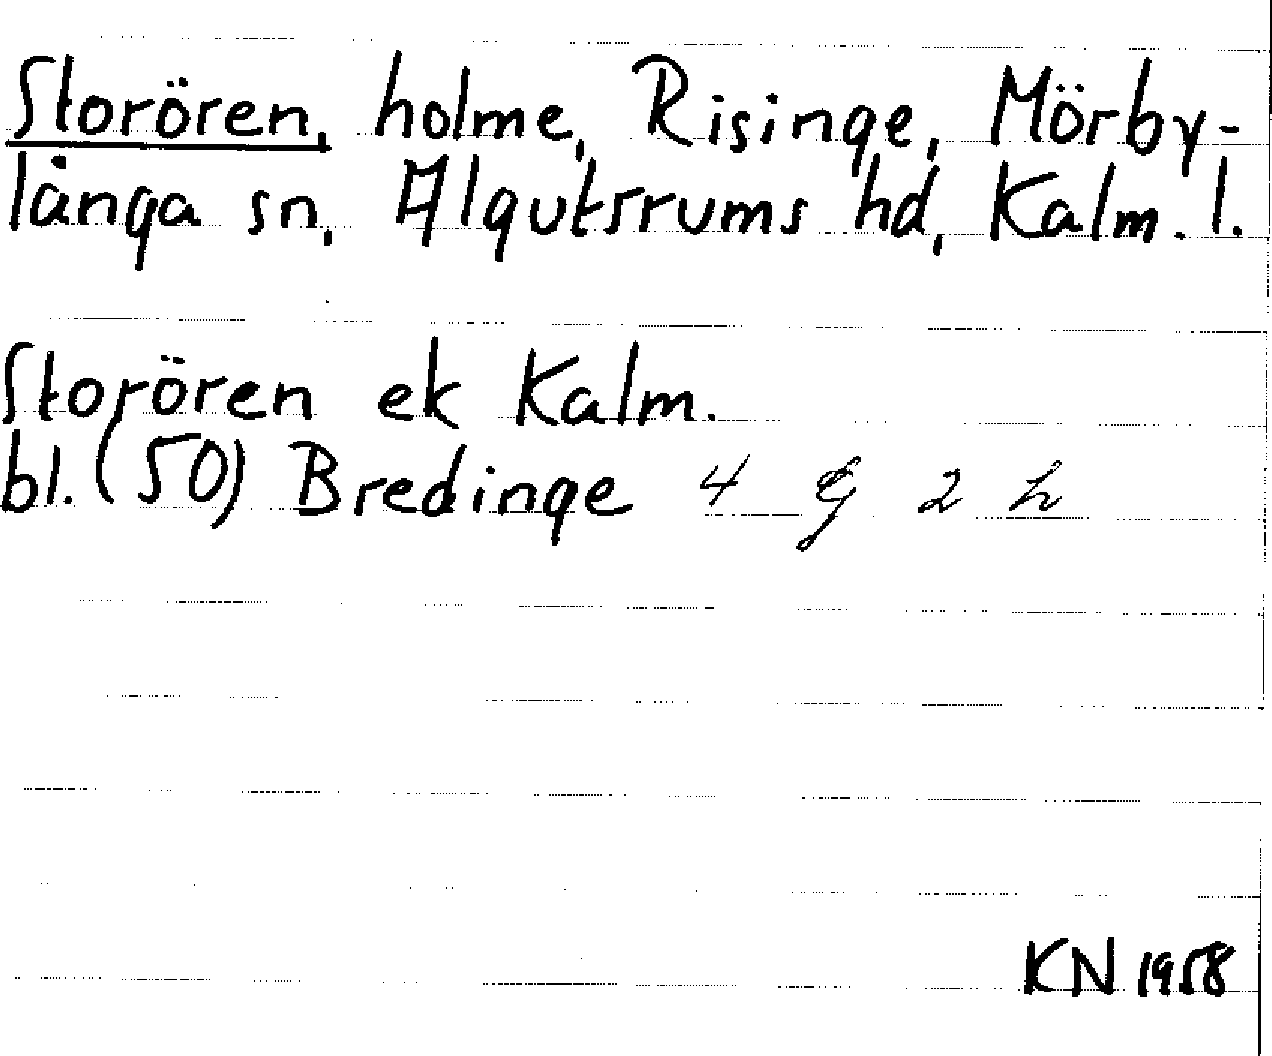 Storören, holme, Risinge, Mörby-
långa sn, Algutsrums hd, Kalm. l.
Storören ek Kalm.
bl. (50) Bredinge 4 G 2 h
KN 1958